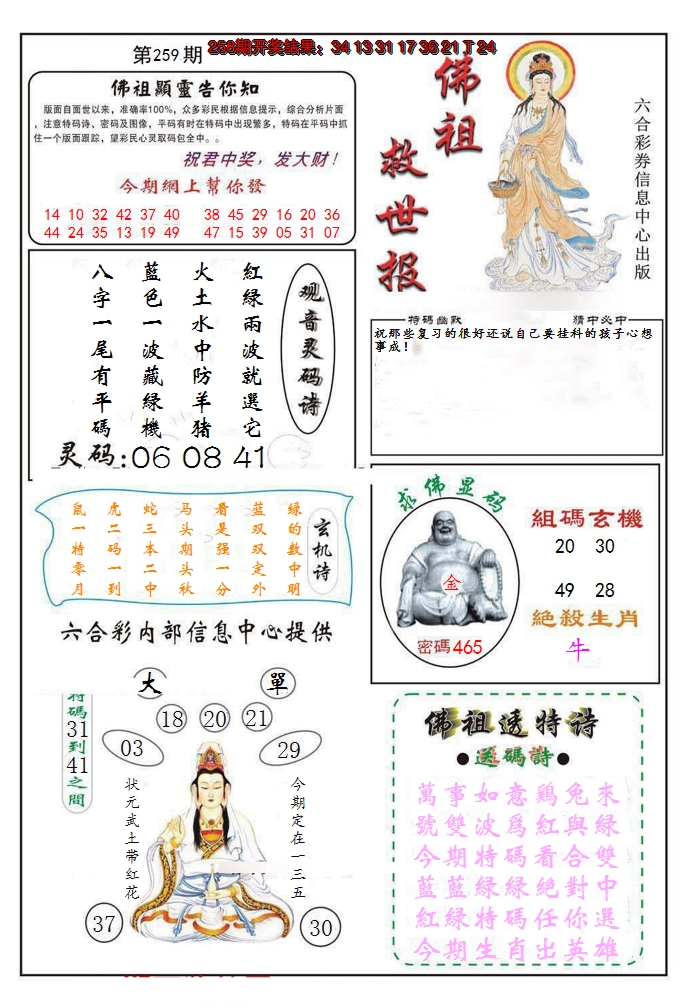 第259期
258期开奖结果：34 13 31 17 36 21丁24
佛祖顯靈告你知
版面自面世以来，准确率100%，众多彩民根据信息提示，综合分析片面
，注意特码诗、密码及图像，平码有时在特码中出现繁多，特码在平码中抓
住一个版面跟踪，望彩民心灵取码包全中。。
祝君中奖，发大财！
今期網上幫你發
14 10 32 42 37 40 38 45 29 16 20 36
44 24 35 13 19 49 47 15 39 05 31 07
佛祖
救世报
六合彩券信息中心出版
观音灵码诗
紅綠兩波就選它
火土水中防羊猪
藍色一波藏緑機
八字一尾有平碼
灵码:06 08 41
特碼幽默
猜中必中
祝那些复习的很好还说自己要挂科的孩子心想
事成！
玄机诗
绿的数中明
蓝双双定外
看是强一分
马头期头秋
蛇三本二中
虎二码一到
鼠一特零月
六合彩内部信息中心提供
求佛显码
金
密碼465
組碼玄機
20 30
49 28
絶殺生肖
牛
大
單
特碼31到41之間
18 20 21
03
29
状元武土带红花
今期定在一三五
37
30
佛祖透特诗
●送碼詩●
萬事如意鷄兔來
號雙波爲紅與緑
今期特碼看合雙
藍藍緑緑絶對中
紅緑特碼任你選
今期生肖出英雄